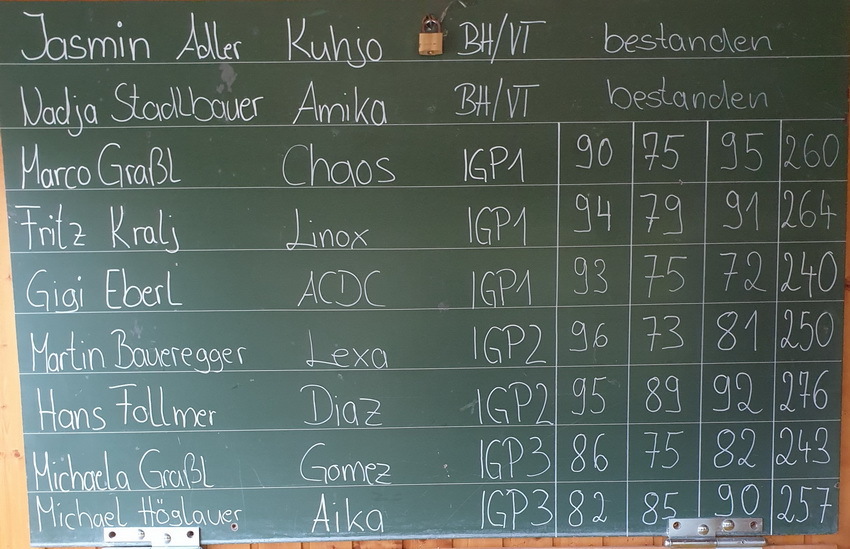 Jasmin Adler Kuhjo BH/VT bestanden
Nadja Stadlbauer Amika BH/VT bestanden
Marco Graßl Chaos IGP1 90 75 95 260
Fritz Kralj Linox IGP1 94 79 91 264
Gigi Eberl ACDC IGP1 93 75 72 240
Martin Baueregger Lexa IGP2 96 73 81 250
Hans Follmer Diaz IGP2 95 89 92 276
Michaela Graßl Gomez IGP3 86 75 82 243
Michael Höglauer Aika IGP3 82 85 90 257